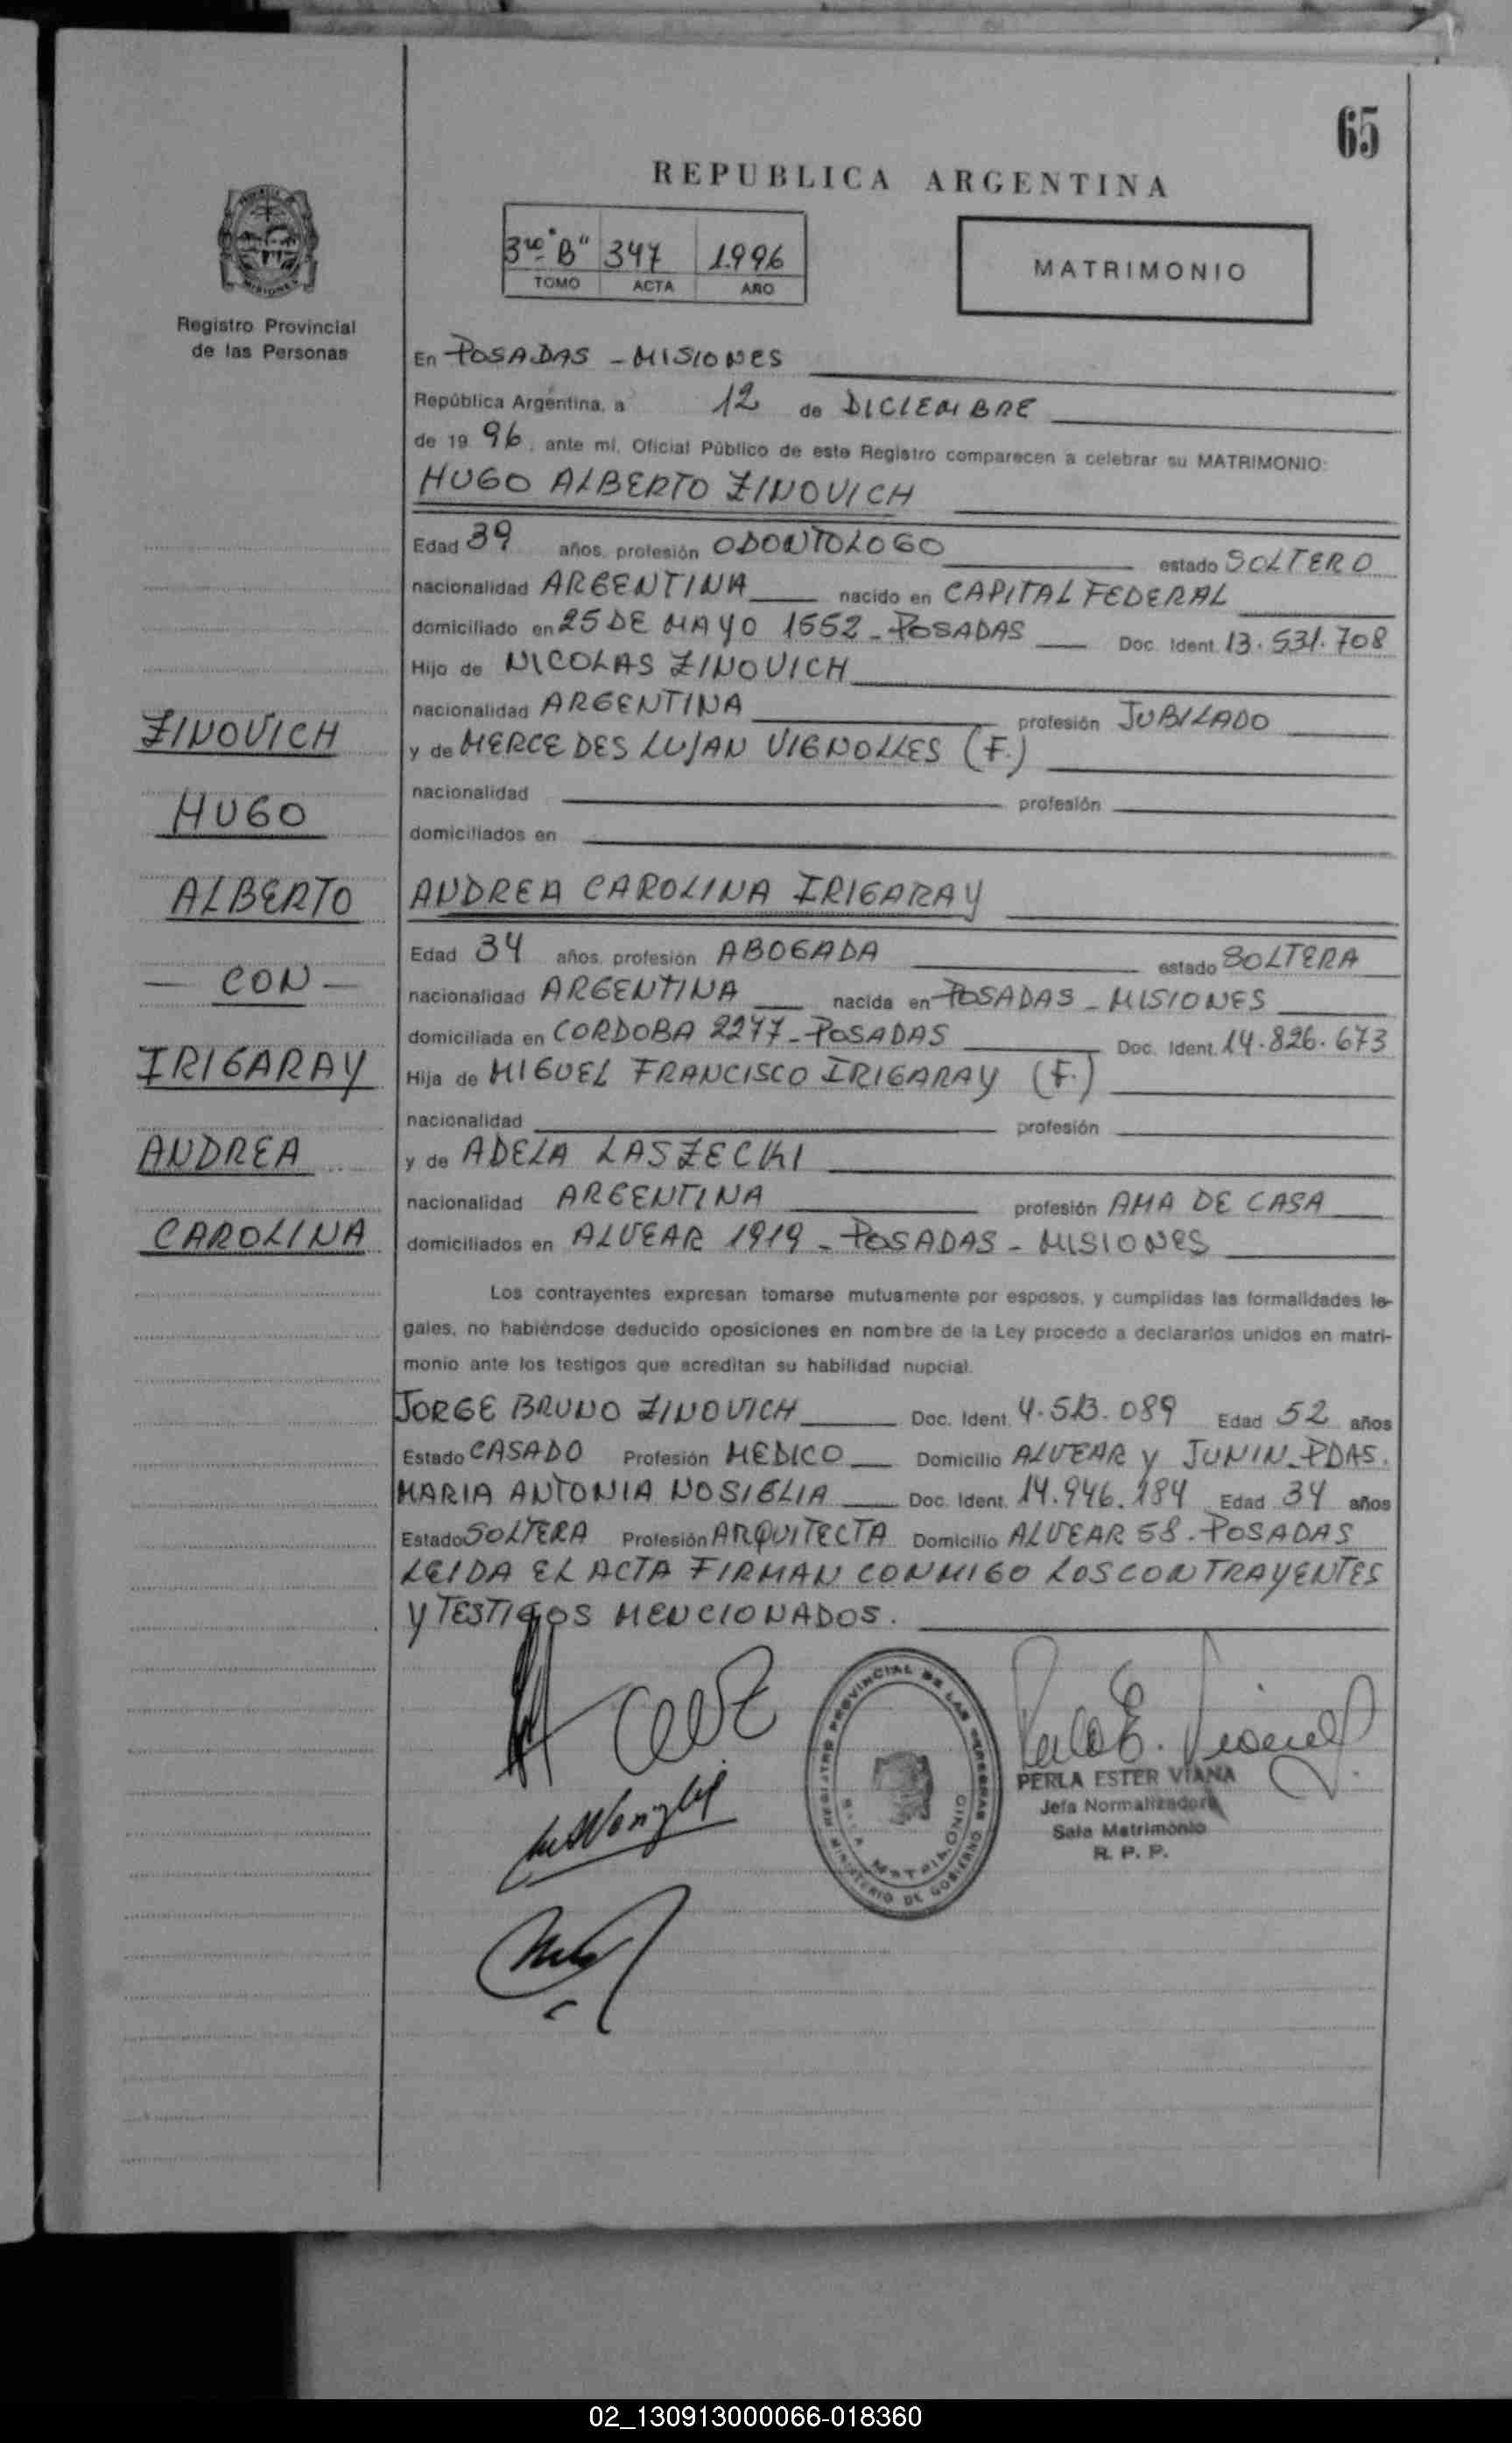 65
REPUBLICA ARGENTINA
3ro "B" 347 1996
TOMO ACTA AÑO
MATRIMONIO
Registro Provincial
de las Personas
En POSADAS - MISIONES
República Argentina, a 12 de DICIEMBRE
de 19 96, ante mí, Oficial Público de este Registro comparecen a celebrar su MATRIMONIO:
HUGO ALBERTO ZINOVICH
Edad 39 años, profesión ODONTOLOGO estado SOLTERO
nacionalidad ARGENTINA nacido en CAPITAL FEDERAL
domiciliado en 25 DE MAYO 1552 - POSADAS Doc. Ident. 13.531.708
Hijo de NICOLAS ZINOVICH
nacionalidad ARGENTINA profesión JUBILADO
y de MERCEDES LUJAN VIGNOLLES (F.)
nacionalidad profesión
domiciliados en
ANDREA CAROLINA IRIGARAY
Edad 34 años, profesión ABOGADA estado SOLTERA
nacionalidad ARGENTINA nacida en POSADAS - MISIONES
domiciliada en CORDOBA 2277 - POSADAS Doc. Ident. 14.826.673
Hija de MIGUEL FRANCISCO IRIGARAY (F.)
nacionalidad profesión
y de ADELA LASZECKI
nacionalidad ARGENTINA profesión AMA DE CASA
domiciliados en ALVEAR 1919 - POSADAS - MISIONES
ZINOVICH
HUGO
ALBERTO
- CON -
IRIGARAY
ANDREA
CAROLINA
Los contrayentes expresan tomarse mutuamente por esposos, y cumplidas las formalidades le-
gales, no habiéndose deducido oposiciones en nombre de la Ley procedo a declararlos unidos en matri-
monio ante los testigos que acreditan su habilidad nupcial.
JORGE BRUNO ZINOVICH Doc. Ident. Edad 52 años
Estado CASADO Profesión MEDICO Domicilio ALVEAR y JUNIN - PDAS.
MARIA ANTONIA NOSIGLIA Doc. Ident. 14.946.184 Edad 34 años
Estado SOLTERA Profesión ARQUITECTA Domicilio ALVEAR 58 - POSADAS
LEIDA EL ACTA FIRMAN CONMIGO LOS CONTRAYENTES
Y TESTIGOS MENCIONADOS.
REGISTRO PROVINCIAL DE LAS PERSONAS
MINISTERIO DE GOBIERNO
SALA MATRIMONIO
PERLA ESTER VIANA
Jefa Normalizadora
Sala Matrimonio
R. P. P.
02_130913000066-018360